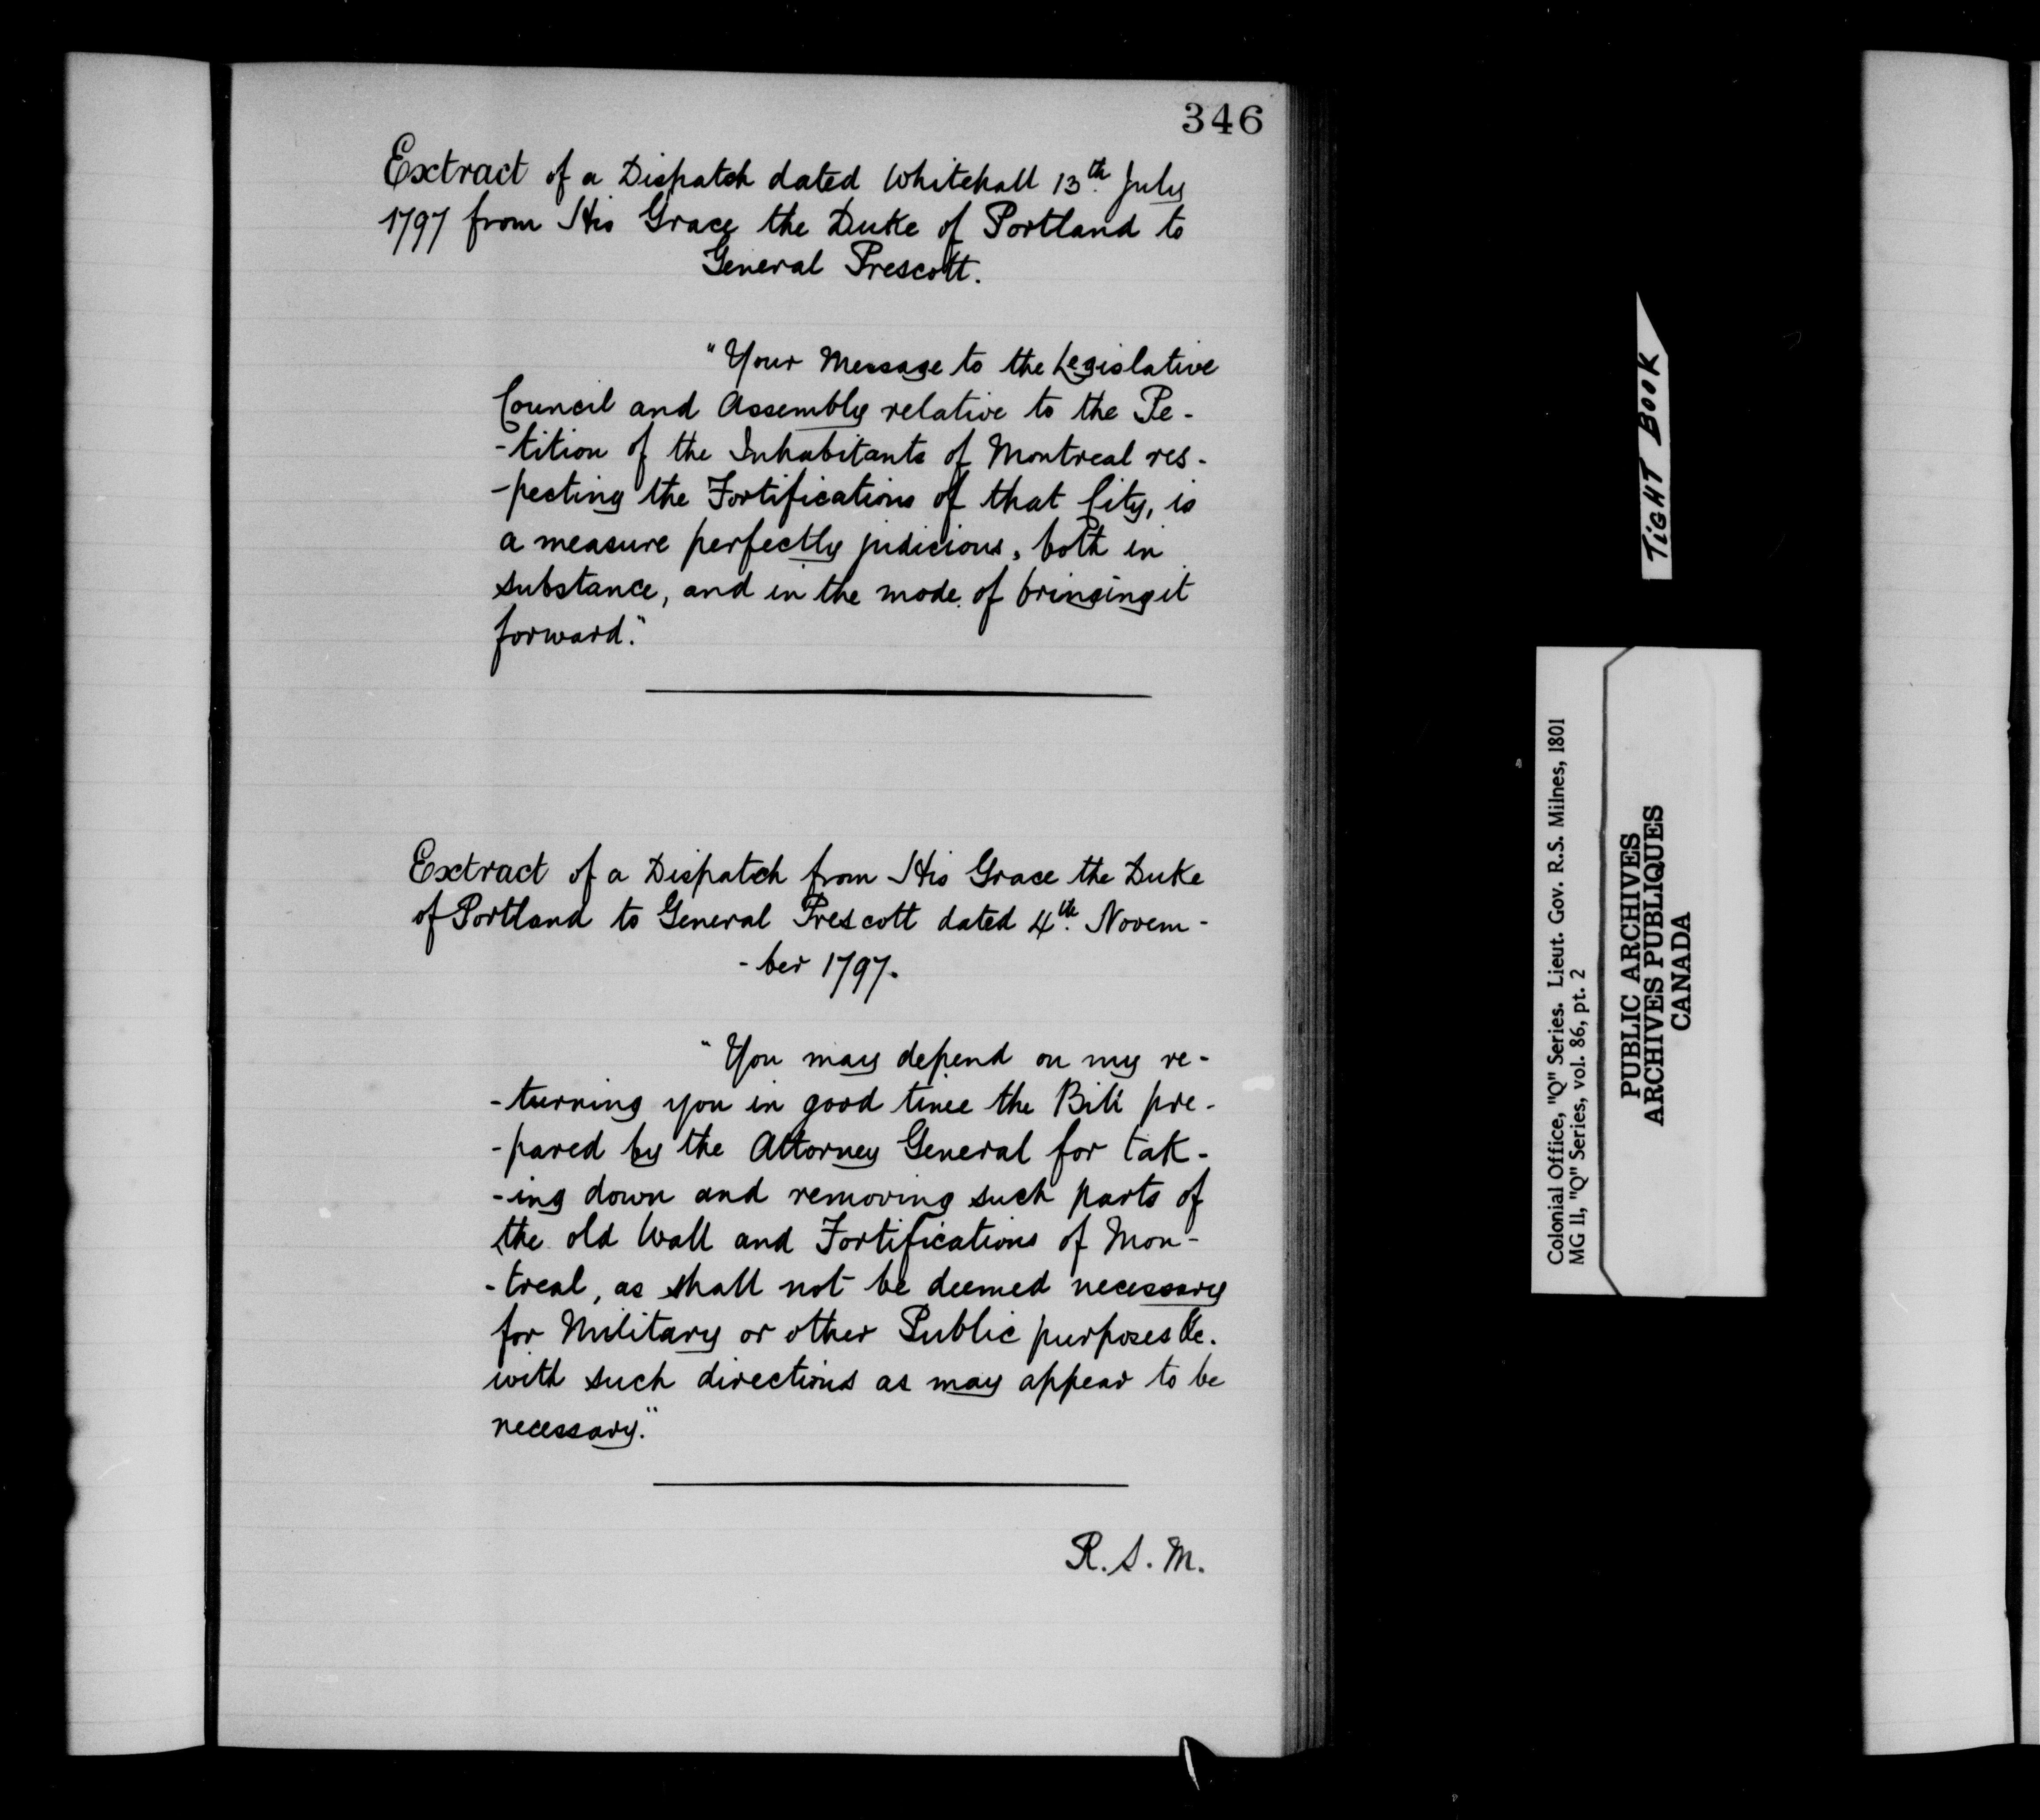 346
Extract of a Dispatch dated Whitehall 13th. July
1797 from His Grace the Duke of Portland to
General Prescott.
"Your Message to the Legislative
Council and Assembly relative to the Pe-
-tition of the Inhabitants of Montreal res-
-pecting the Fortifications of that City, is
a measure perfectly judicious, both in
substance, and in the mode of bringing it
forward."
Extract of a Dispatch from His Grace the Duke
of Portland to General Prescott dated 4th. Novem-
-ber 1797.
"You may depend on my re-
-turning you in good time the Bill pre-
-pared by the Attorney General for tak-
-ing down and removing such parts of
the old Wall and Fortifications of Mon-
-treal, as shall not be deemed necessary
for Military or other Public purposes &c.
with such directions as may appear to be
necessary."
R.S.M.
TIGHT BOOK
Colonial Office, "Q" Series. Lieut. Gov. R.S. Milnes, 1801
MG 11, "Q" Series, vol. 86, pt. 2
PUBLIC ARCHIVES
ARCHIVES PUBLIQUES
CANADA